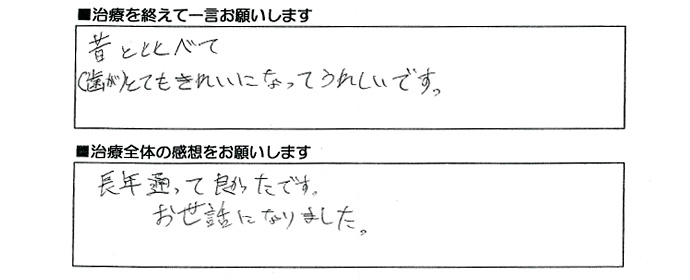 ■治療を終えて一言お願いします
昔とととべて
(歯が)とてもきれいになってうれしいです。
■治療全体の感想をお願いします
長年通って良かったです。
お世話になりました。